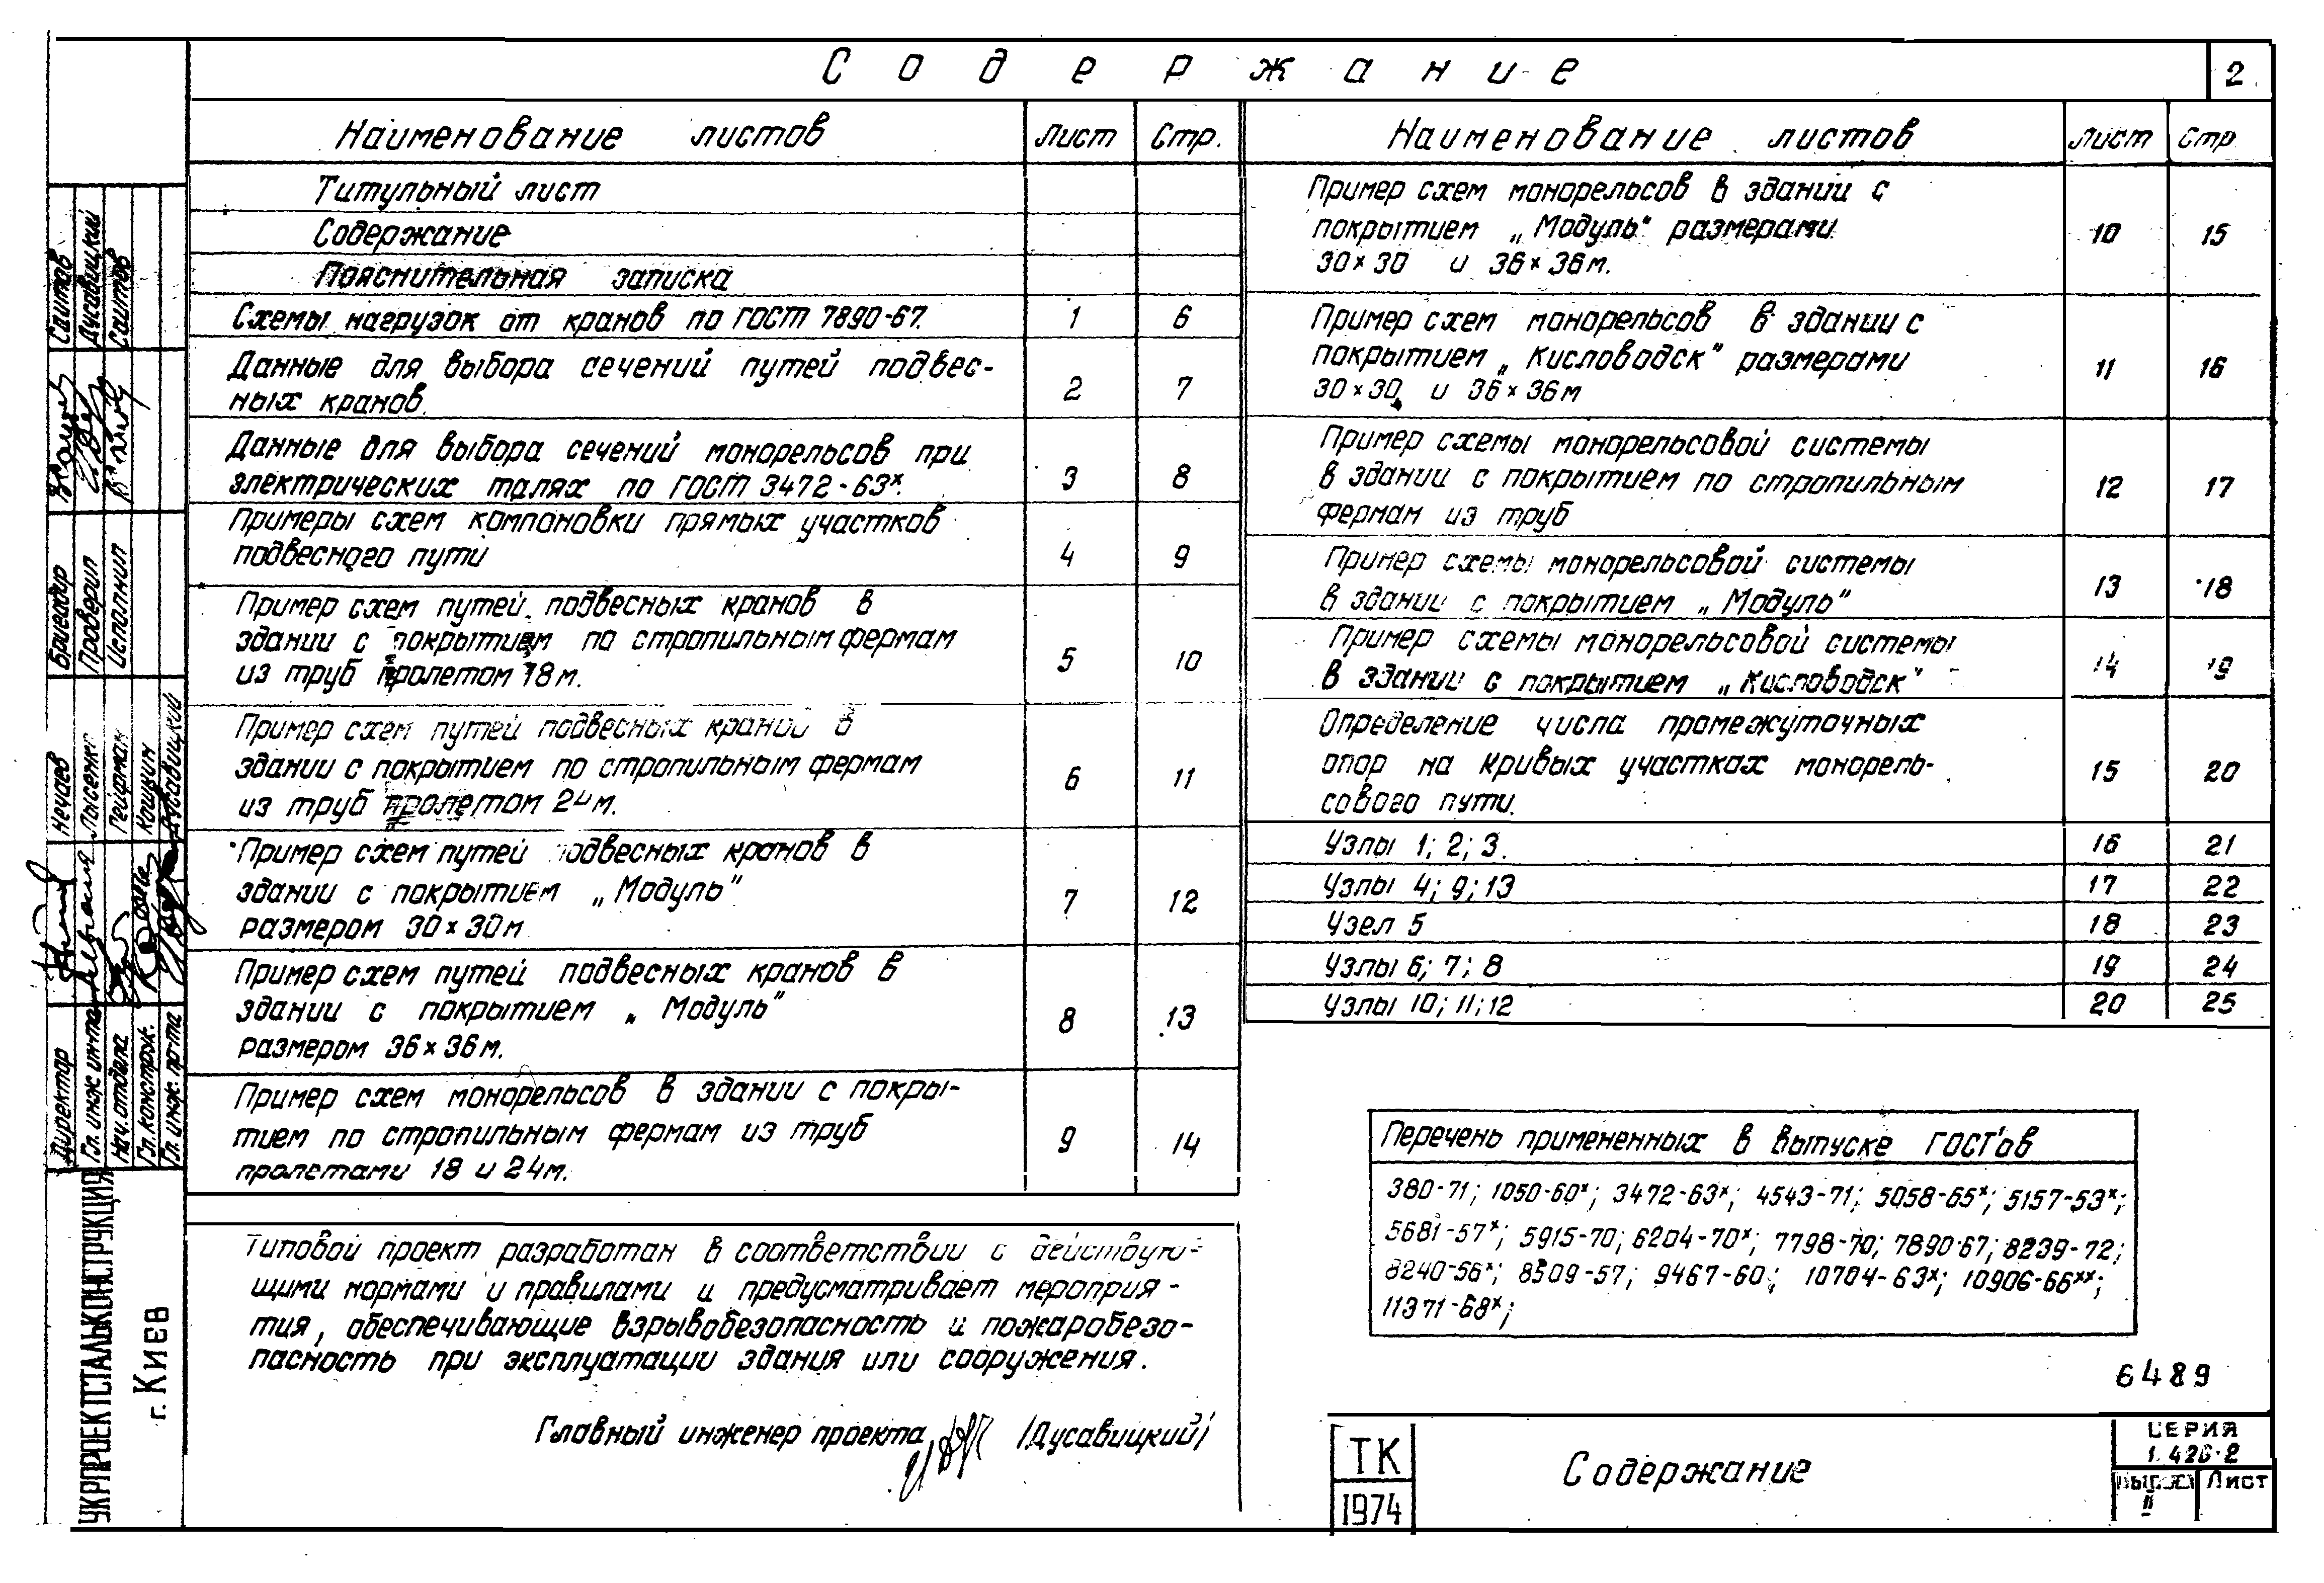 Содержание
2
Наименование листов Лист Стр.
Титульный лист
Содержание
Пояснительная записка
Схемы нагрузок от кранов по ГОСТ 7890-67. 1 6
Данные для выбора сечений путей подвес-
ных кранов. 2 7
Данные для выбора сечений монорельсов при
электрических талях по ГОСТ 3472-63ˣ. 3 8
Примеры схем компоновки прямых участков
подвесного пути 4 9
Пример схем путей подвесных кранов в
здании с покрытием по стропильным фермам
из труб пролетом 18м. 5 10
Пример схем путей подвесных кранов в
здании с покрытием по стропильным фермам
из труб пролетом 24м. 6 11
Пример схем путей подвесных кранов в
здании с покрытием „Модуль"
размером 30×30м 7 12
Пример схем путей подвесных кранов в
здании с покрытием „Модуль"
размером 36×36м. 8 13
Пример схем монорельсов в здании с покры-
тием по стропильным фермам из труб
пролетами 18 и 24м. 9 14
Наименование листов Лист Стр
Пример схем монорельсов в здании с
покрытием „Модуль" размерами
30×30 и 36×36м. 10 15
Пример схем монорельсов в здании с
покрытием „Кисловодск" размерами
30×30 и 36×36м 11 16
Пример схемы монорельсовой системы
в здании с покрытием по стропильным
фермам из труб 12 17
Пример схемы монорельсовой системы
в здании с покрытием „Модуль" 13 18
Пример схемы монорельсовой системы
в здании с покрытием „Кисловодск" 14 19
Определение числа промежуточных
опор на кривых участках монорель-
сового пути. 15 20
Узлы 1; 2; 3. 16 21
Узлы 4; 9; 13 17 22
Узел 5 18 23
Узлы 6; 7; 8 19 24
Узлы 10; 11; 12 20 25
Типовой проект разработан в соответствии с действую-
щими нормами и правилами и предусматривает мероприя-
тия, обеспечивающие взрывобезопасность и пожаробезо-
пасность при эксплуатации здания или сооружения.
Главный инженер проекта /Дусавицкий/
Перечень примененных в выпуске ГОСТ'ов
380-71; 1050-60ˣ; 3472-63ˣ; 4543-71; 5058-65ˣ; 5157-53ˣ;
5681-57ˣ; 5915-70; 6204-70ˣ; 7798-70; 7890-67; 8239-72;
8240-56ˣ; 8509-57; 9467-60; 10704-63ˣ; 10906-66ˣˣ;
11371-68ˣ;
6489
ТК
1974
Содержание
СЕРИЯ
1.426-2
Выпуск
II
Лист
УКРПРОЕКТСТАЛЬКОНСТРУКЦИЯ
г. Киев
Директор Нечаев
Гл. инж. ин-та Лысенко
Нач. отдела Рейфман
Гл. констрж. Кошин
Гл. инж. пр-та Дусавицкий
Бригадир Саитов
Проверил Дусавицкий
Исполнил Саитов